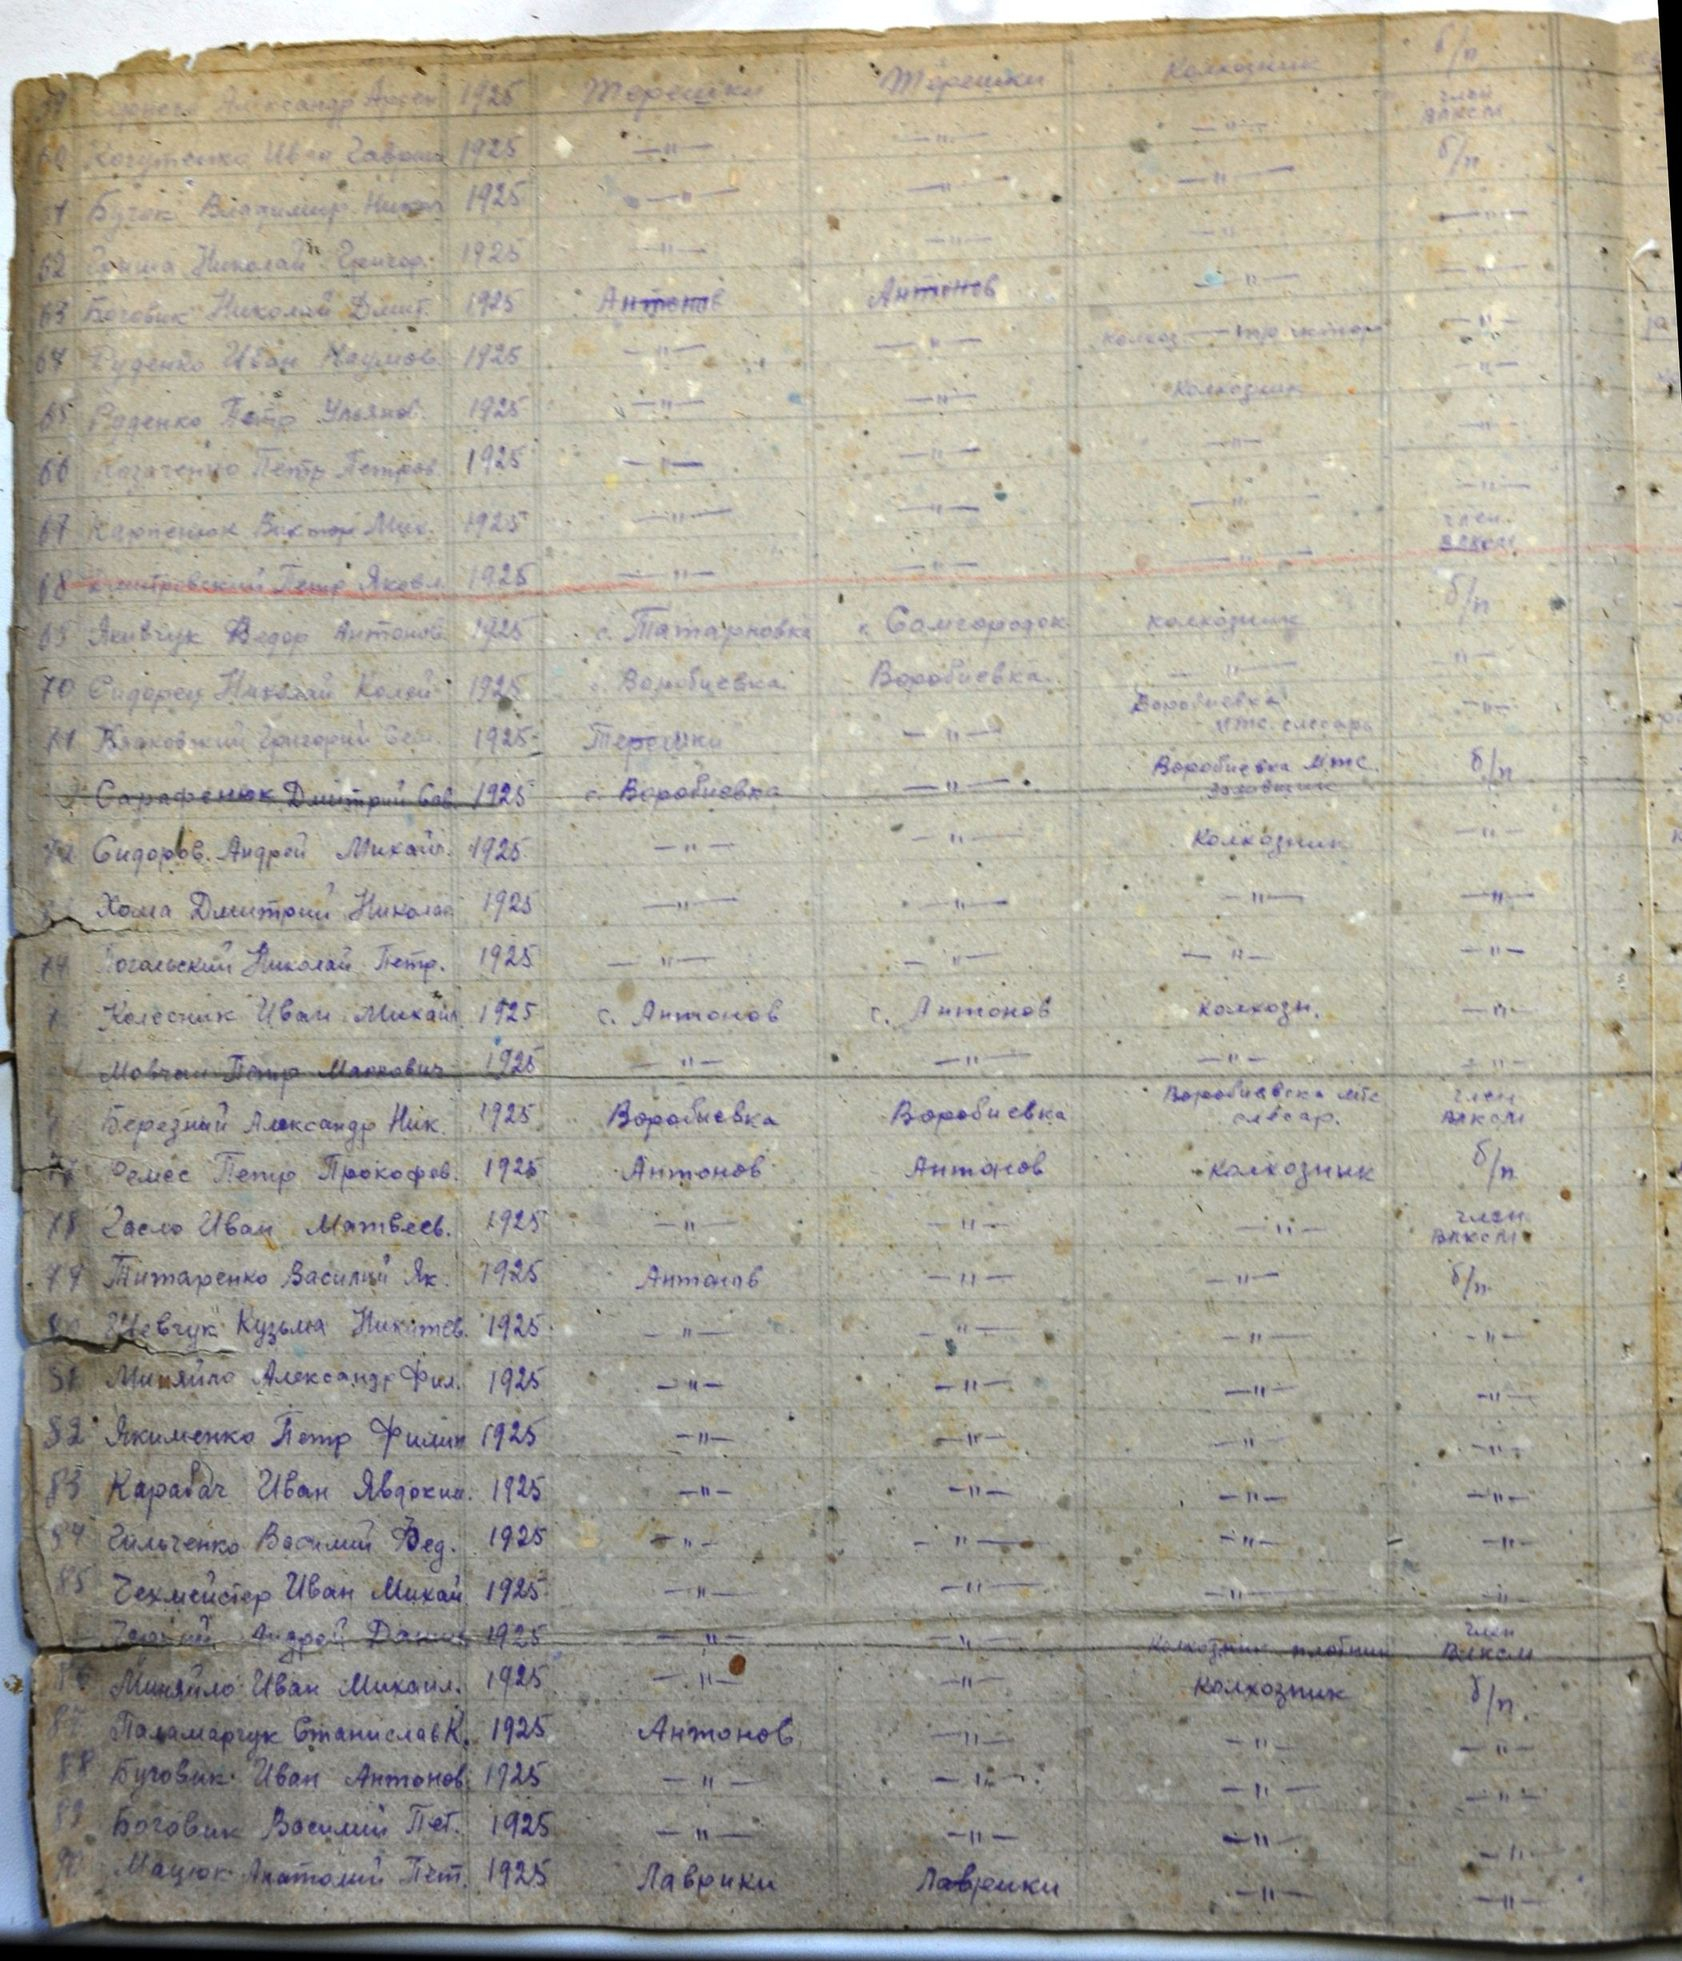 59 Александр Арсен 1925 Терешки Терешки Колхозник б/п
60 Когутенко Иван Гаврил 1925 —"— —"— —"— член ВЛКСМ
61 Бучок Владимир Никол 1925 —"— —"— —"— б/п
62 Николай Григор. 1925 —"— —"— —"— —"—
63 Боговик Николай Дмит. 1925 Антонов Антонов —"— —"—
64 Руденко Иван Наумов. 1925 —"— —"— колхоз —"—
65 Руденко Петр Ульянов. 1925 —"— —"— Колхозник —"—
66 Козаченко Петр Петров. 1925 —"— —"— —"— —"—
67 Карпенюк Виктор Мих. 1925 —"— —"— —"— —"—
68 Дмитровский Петр Яковл. 1925 —"— —"— —"— член ВЛКСМ
69 Якивчук Федор Антонов 1925 с. Татарновка с. Самгородок колхозник б/п
70 Сидорец Николай 1925 с. Воробиевка Воробиевка —"— —"—
71 Григорий 1925 Терешки —"— Воробиевка мтс. слесарь —"—
Сарафенюк Дмитрий Сав. 1925 с. Воробиевка —"— Воробиевка мтс. б/п
72 Сидоров. Андрей Михайл. 1925 —"— —"— Колхозник —"—
Хома Дмитрий Николае 1925 —"— —"— —"— —"—
74 Николай Петр. 1925 —"— —"— —"— —"—
Колесник Иван Михайл. 1925 с. Антонов с. Антонов колхозн. —"—
Мовчан Петр Маркович 1925 —"— —"— —"— —"—
Березный Александр Ник. 1925 Воробиевка Воробиевка Воробиевска мтс слесар. член ВЛКСМ
77 Ремес Петр Прокофев. 1925 Антонов Антонов Колхозник б/п
78 Гасло Иван Матвеев. 1925 —"— —"— —"— член ВЛКСМ
79 Титаренко Василий Як. 1925 Антонов —"— —"— б/п.
80 Шевчук Кузьма Никитев. 1925 —"— —"— —"— —"—
81 Миняйло Александр Фил. 1925 —"— —"— —"— —"—
82 Якименко Петр Филип 1925 —"— —"— —"— —"—
83 Карабач Иван Явдоким. 1925 —"— —"— —"— —"—
84 Гильченко Василий Фед. 1925 —"— —"— —"— —"—
85 Чехмейстер Иван Михай 1925 —"— —"— —"— —"—
Андрей Данил 1925 —"— —"— Колхозник плотник член ВЛКСМ
86 Миняйло Иван Михаил. 1925 —"— —"— Колхозник б/п.
87 Паламарчук Станислав К. 1925 Антонов —"— —"— —"—
88 Буговик Иван Антонов. 1925 —"— —"— —"— —"—
89 Боговик Василий Пет. 1925 —"— —"— —"— —"—
90 Мацюк Анатолий Пет. 1925 Лаврики Лаврики —"— —"—